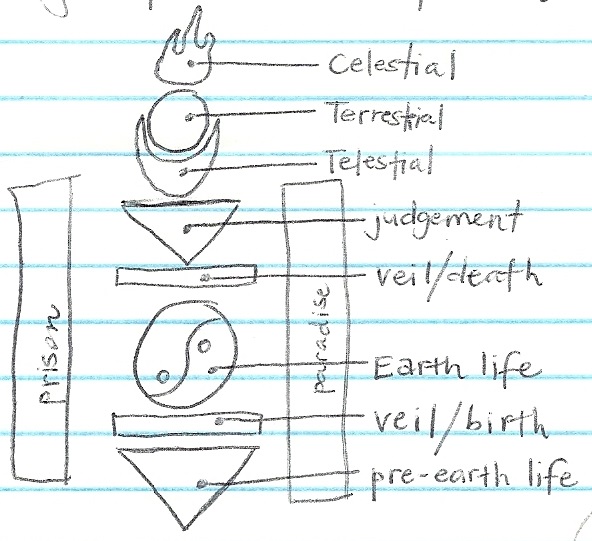 Celestial
Terrestrial
Telestial
judgement
veil/death
prison
paradise
Earth life
veil/birth
pre-earth life